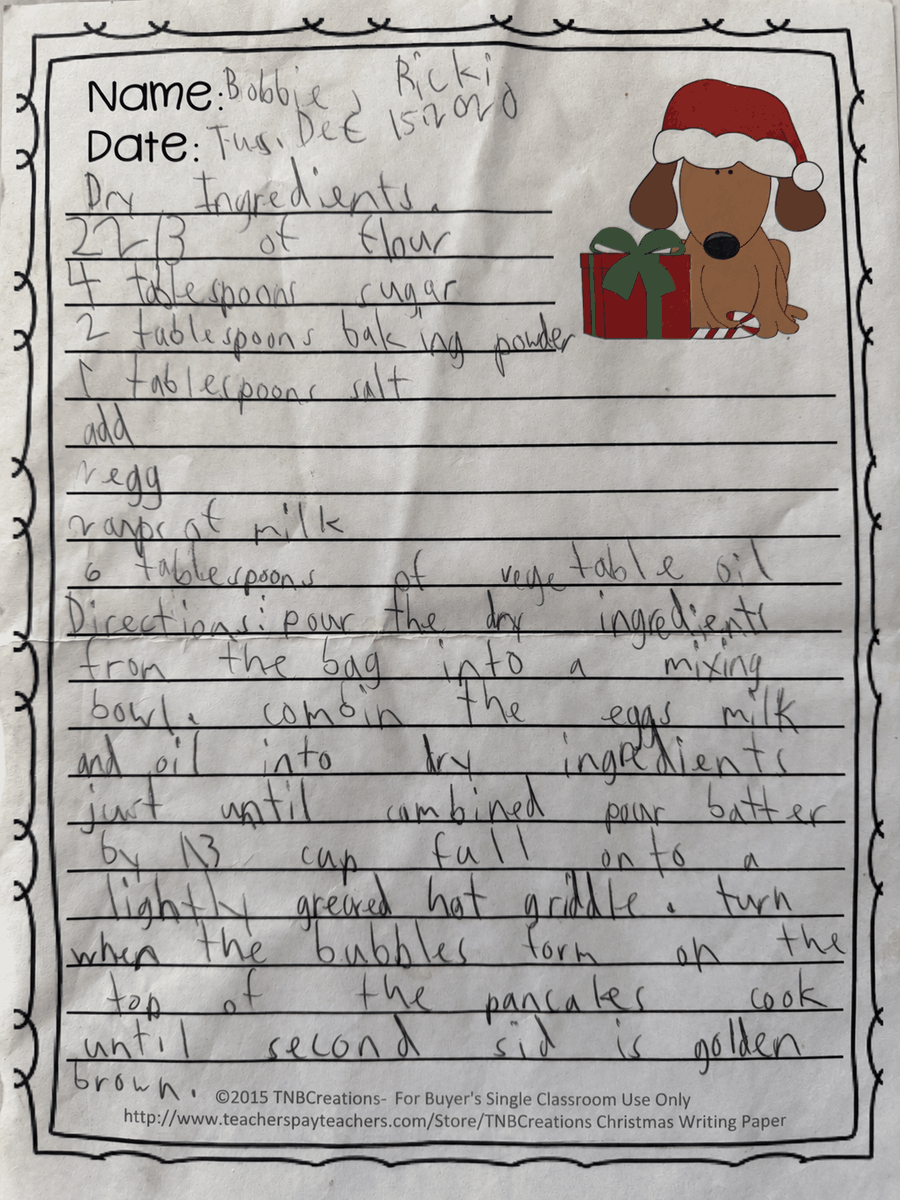 Name: Bobbie, Ricki
Date: Tus. Dec 15 2020
Dry Ingredients.
2 2/3 of flour
4 tablespoons sugar
2 tablespoons baking powder
1 tablespoons salt
add
2 egg
2 cups of milk
6 tablespoons of vegetable oil
Directions: pour the dry ingredients
from the bag into a mixing
bowl. combin the eggs milk
and oil into dry ingredients
just until combined pour batter
by 1/3 cup full onto a
lightly greased hot griddle. turn
when the bubbles form on the
top of the pancakes cook
until second sid is golden
brown.
©2015 TNBCreations- For Buyer's Single Classroom Use Only
http://www.teacherspayteachers.com/Store/TNBCreations Christmas Writing Paper